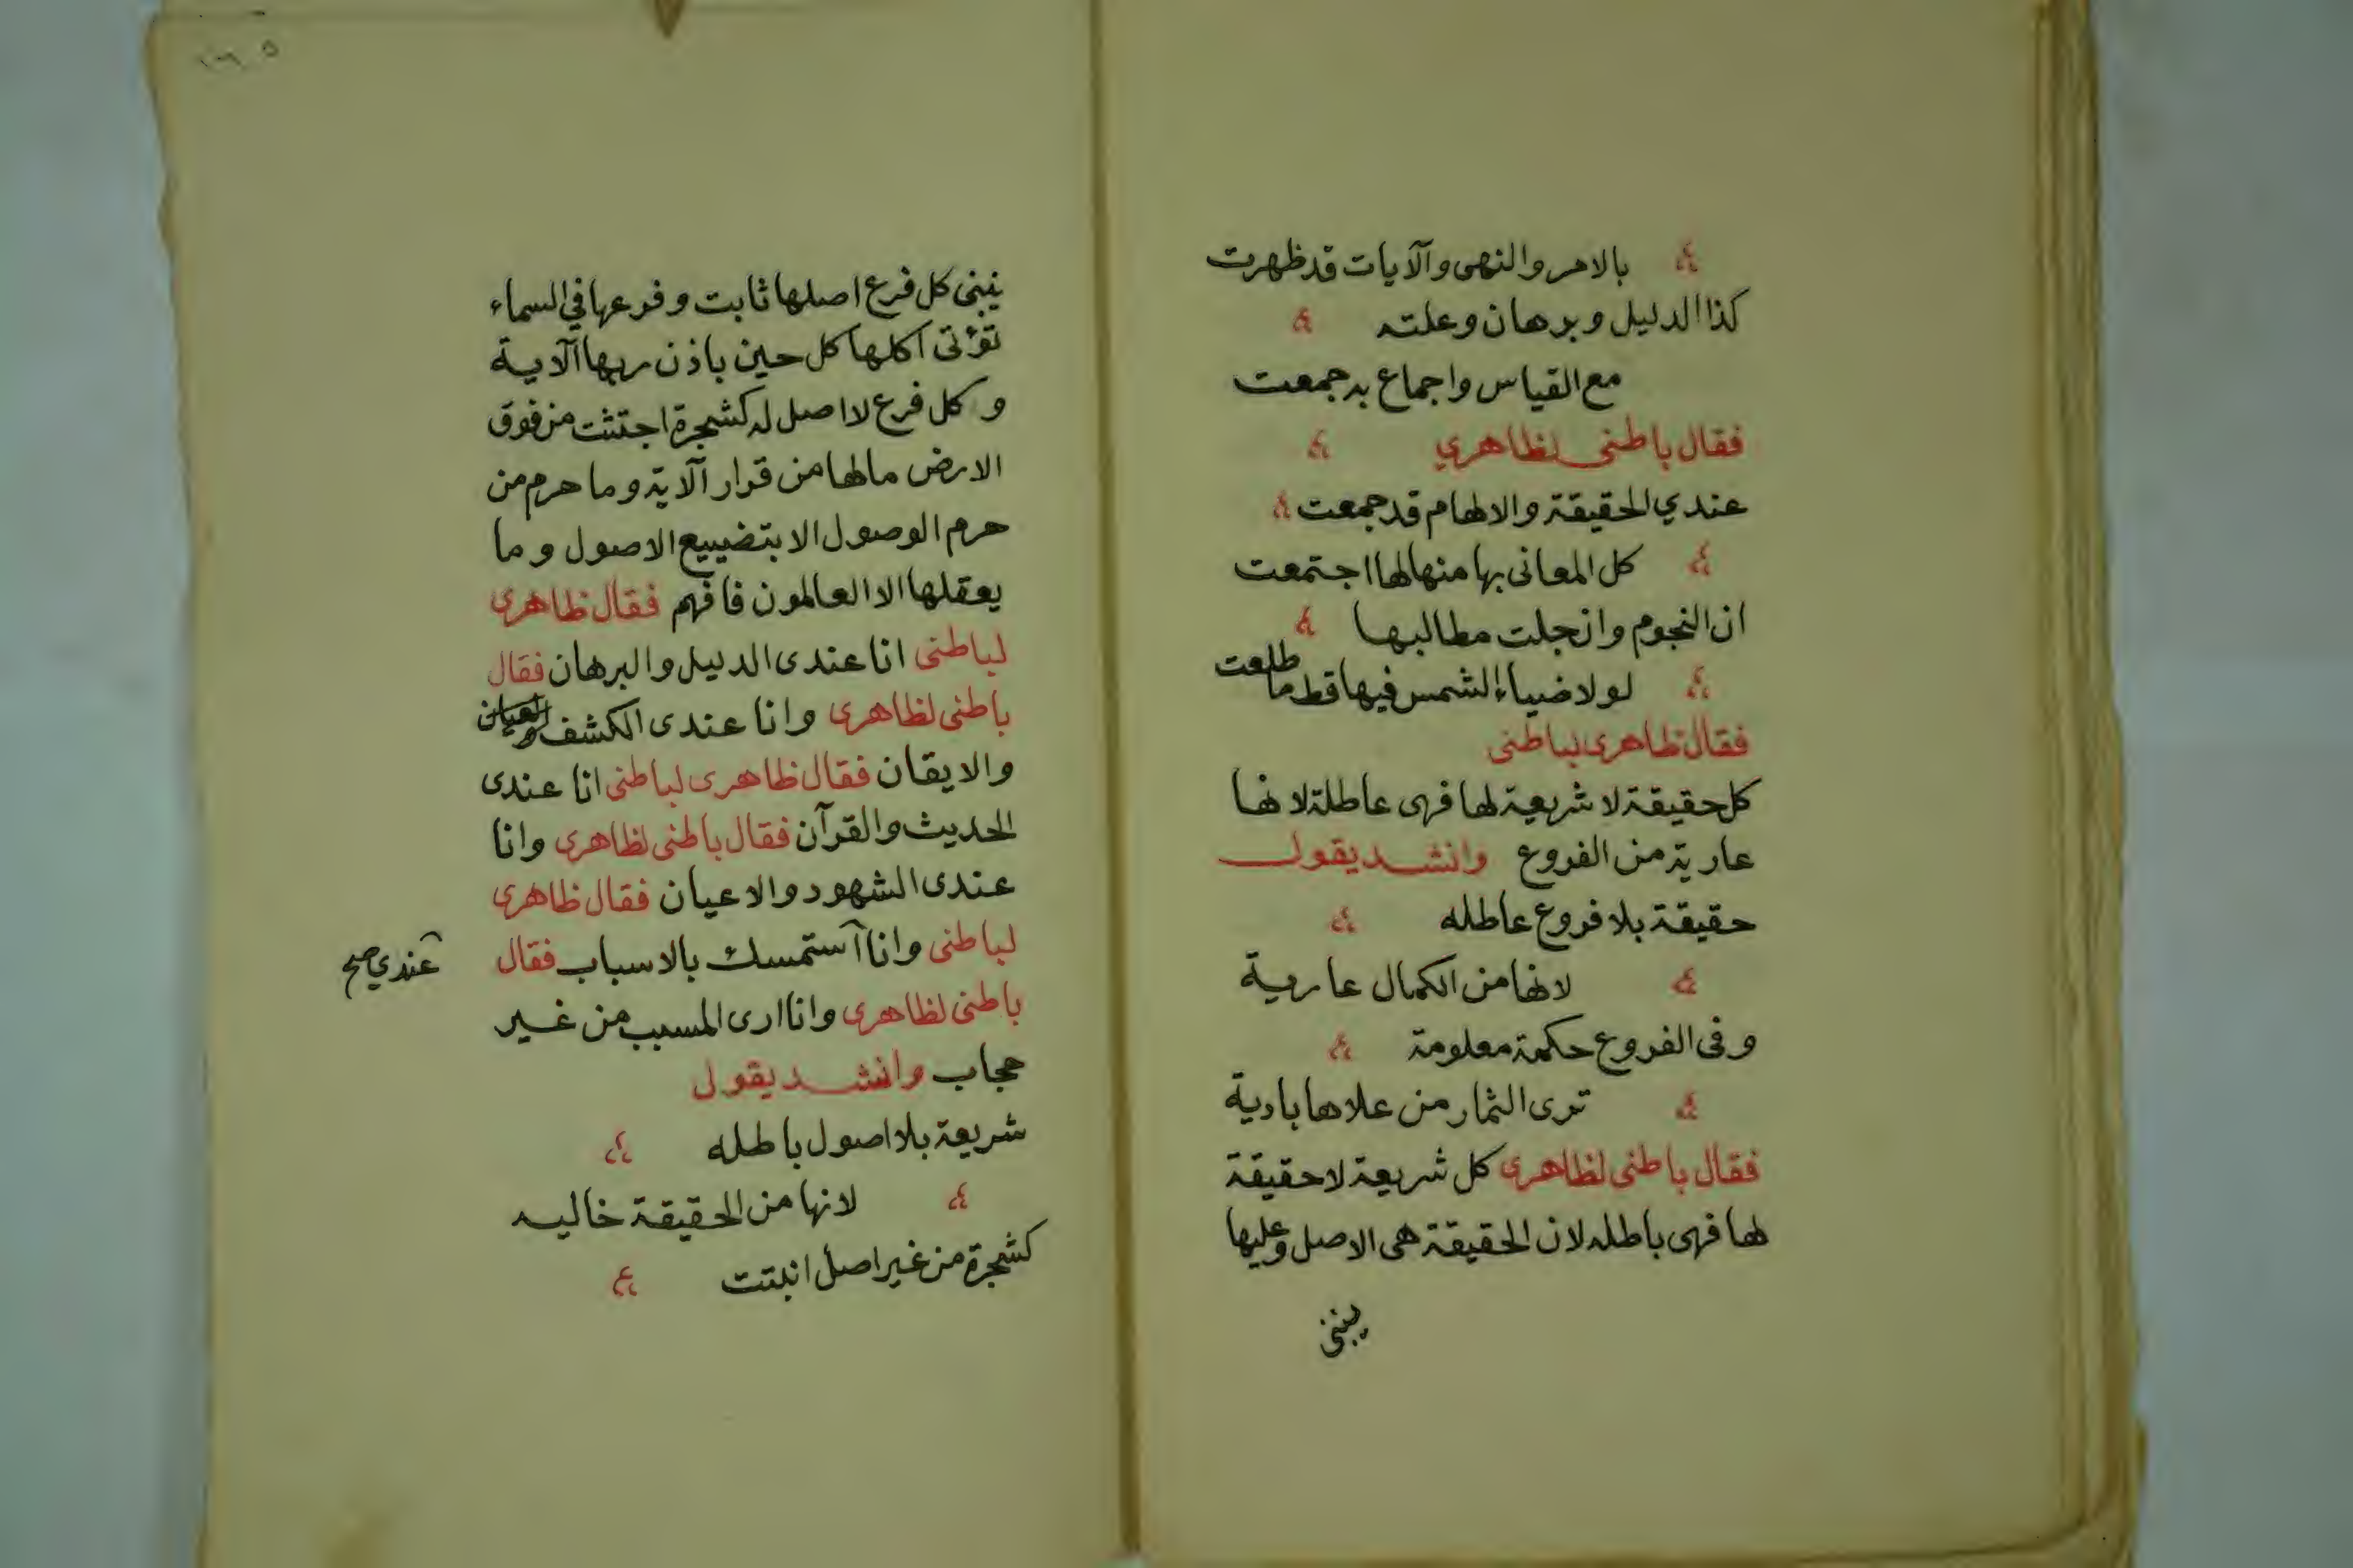 بالامر والنهى والآيات قد ظهرت
كذا الدليل وبرهان وعلته
مع القياس واجماع به جمعت
فقال باطنى لظاهري
عندي الحقيقة والالهام قد جمعت
كل المعانى بها منها لها اجتمعت
ان النجوم وانجلت مطالبها
لولا ضياء الشمس فيها قط ما طلعت
فقال ظاهرى لباطنى
كل حقيقة لا شريعة لها فهى عاطلة لانها
عارية من الفروع وانشد يقول
حقيقة بلا فروع عاطله
لانها من الكمال عارية
وفى الفروع حكمة معلومة
ترى الثمار من علاها بادية
فقال باطنى لظاهرى كل شريعة لا حقيقة
لها فهى باطله لان الحقيقة هى الاصل وعليها
يبنى
يبنى كل فرع اصلها ثابت وفرعها في السماء
تؤتى اكلها كل حين باذن ربها الآية
وكل فرع لا اصل له كشجرة اجتثت من فوق
الارض مالها من قرار الآية وما حرم من
حرم الوصول الا بتضييع الاصول وما
يعقلها الا العالمون فافهم فقال ظاهرى
لباطنى انا عندى الدليل والبرهان فقال
باطنى لظاهرى وانا عندى الكشف والعيان
والايقان فقال ظاهرى لباطنى انا عندى
الحديث والقرآن فقال باطنى لظاهرى وانا
عندى الشهود والاعيان فقال ظاهرى
لباطنى وانا استمسك بالاسباب فقال
عندي صح
باطنى لظاهرى وانا ارى المسبب من غير
حجاب وانشد يقول
شريعة بلا اصول باطله
لانها من الحقيقة خاليه
كشجرة من غير اصل انبتت